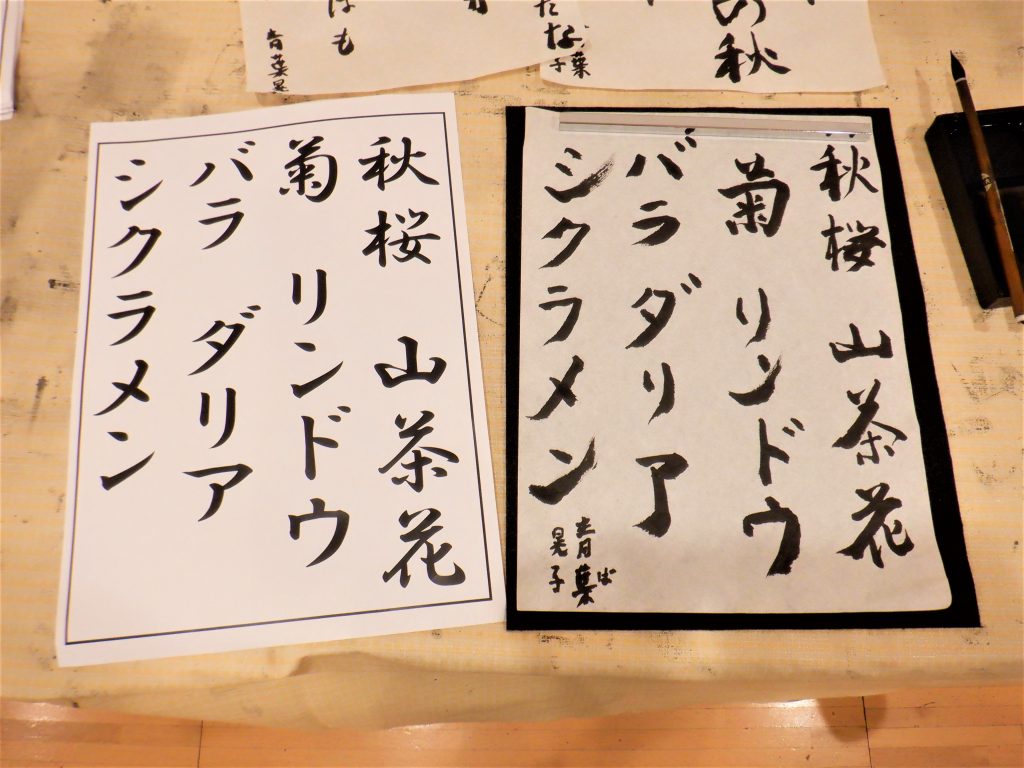 秋桜 山茶花
菊 リンドウ
バラ ダリア
シクラメン
秋桜 山茶花
菊 リンドウ
バラ ダリア
シクラメン
青葉ば
晃子
の秋
はも
青葉晃